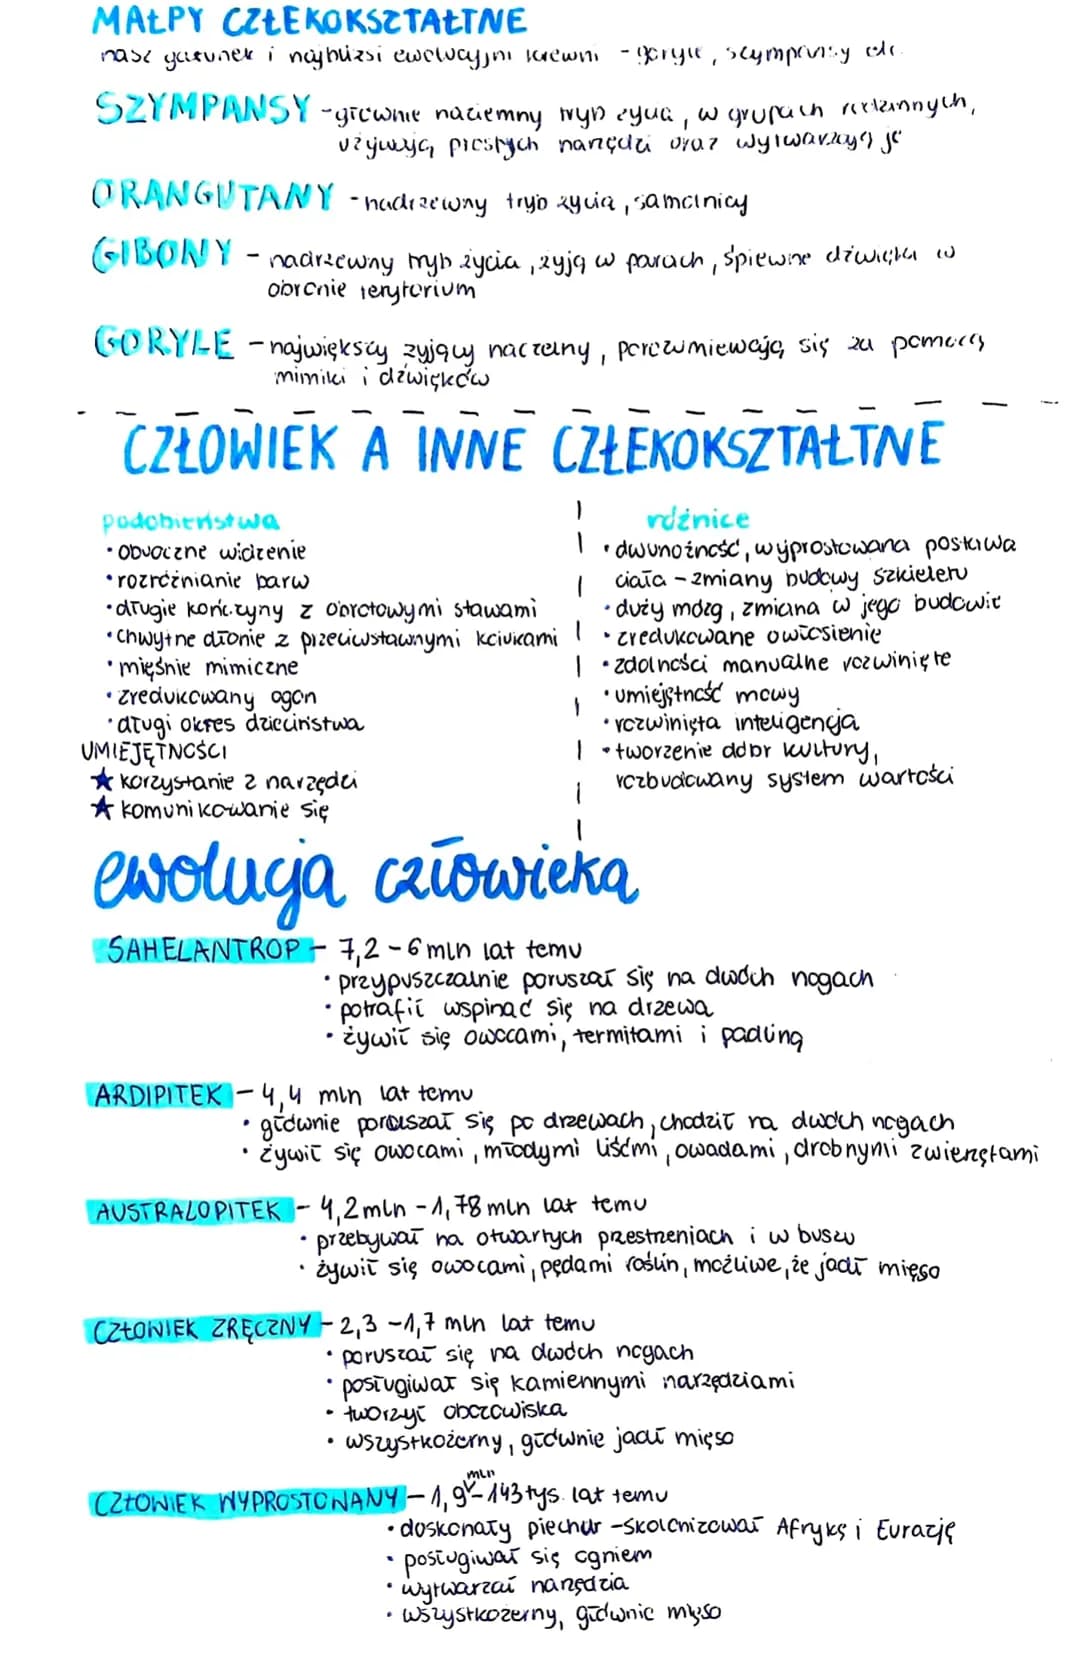 MAŁPY CZŁEKOKSZTAŁTNE
nasz gatunek i najbliżsi ewolucyjni krewni - goryle, szympansy etc.
SZYMPANSY - głównie naziemny tryb życia, w grupach rodzinnych,
używają prostych narzędzi oraz wytwarzają je
ORANGUTANY - nadrzewny tryb życia, samotnicy
GIBONY - nadrzewny tryb życia, żyją w parach, śpiewne dźwięki w
obronie terytorium
GORYLE - największy żyjący naczelny, porozumiewają się za pomocą
mimiki i dźwięków
CZŁOWIEK A INNE CZŁEKOKSZTAŁTNE
podobieństwa
• obuoczne widzenie
• rozróżnianie barw
• długie kończyny z obrotowymi stawami
• chwytne dłonie z przeciwstawnymi kciukami
• mięśnie mimiczne
• zredukowany ogon
• długi okres dzieciństwa
UMIEJĘTNOŚCI
★ korzystanie z narzędzi
★ komunikowanie się
różnice
• dwunożność, wyprostowana postawa
ciała - zmiany budowy szkieletu
• duży mózg, zmiana w jego budowie
• zredukowane owłosienie
• zdolności manualne rozwinięte
• umiejętność mowy
• rozwinięta inteligencja
• tworzenie dóbr kultury,
rozbudowany system wartości
ewolucja człowieka
SAHELANTROP - 7,2 - 6 mln lat temu
• przypuszczalnie poruszał się na dwóch nogach
• potrafił wspinać się na drzewa
• żywił się owocami, termitami i padliną
ARDIPITEK - 4,4 mln lat temu
• głównie poruszał się po drzewach, chodził na dwóch nogach
• żywił się owocami, młodymi liśćmi, owadami, drobnymi zwierzętami
AUSTRALOPITEK - 4,2 mln - 1,78 mln lat temu
• przebywał na otwartych przestrzeniach i w buszu
• żywił się owocami, pędami roślin, możliwe, że jadł mięso
CZŁOWIEK ZRĘCZNY - 2,3 - 1,7 mln lat temu
• poruszał się na dwóch nogach
• posługiwał się kamiennymi narzędziami
• tworzył obozowiska
• wszystkożerny, głównie jadł mięso
CZŁOWIEK WYPROSTOWANY - 1,9 mln - 143 tys. lat temu
• doskonały piechur - skolonizował Afrykę i Eurazję
• posługiwał się ogniem
• wytwarzał narzędzia
• wszystkożerny, głównie mięso